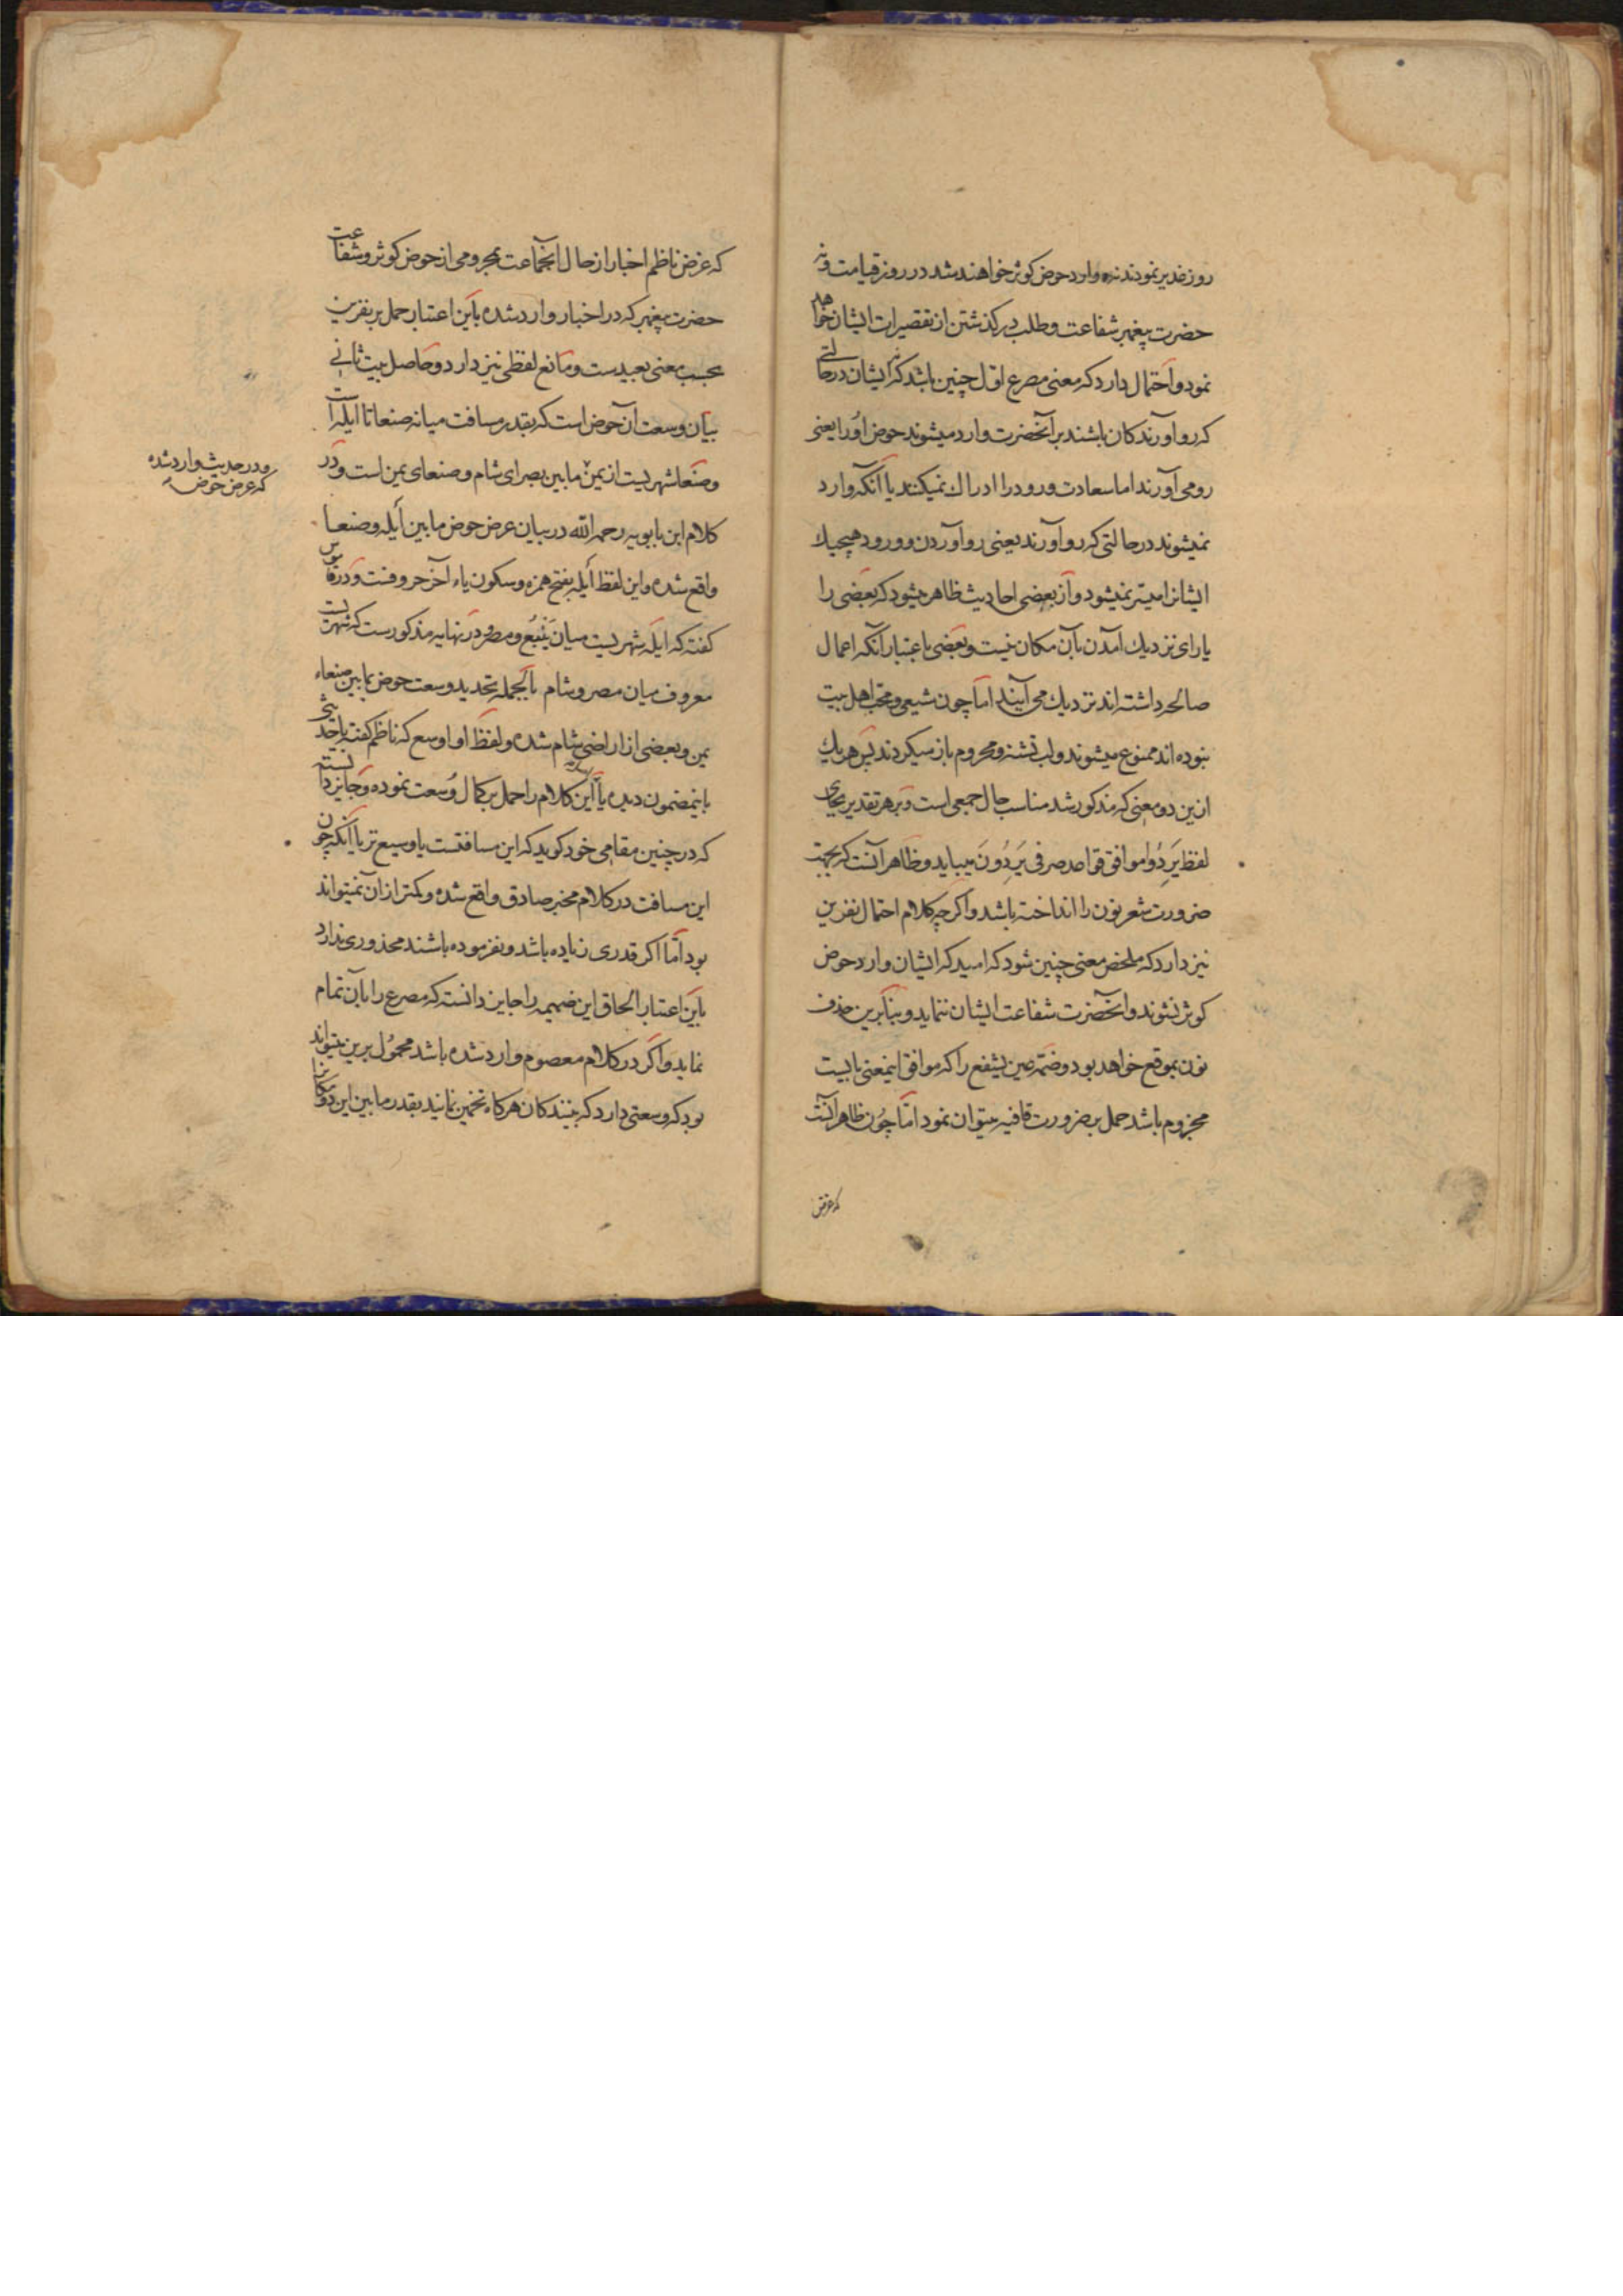 روز غدیر نمودند نه وارد حوض کوثر خواهند شد در روز قیامت و نه
حضرت پیغمبر شفاعت و طلب در کذشتن از تقصیرات ایشان خواهد
نمود و احتمال دارد که معنی مصرع اول چنین باشد که ایشان در حالتی
که رو آورندکان باشند بر آنحضرت وارد میشوند حوض اورا یعنی
رو می آورند اما سعادت ورود را ادراک نمیکنند یا آنکه وارد
نمیشوند در حالتی که رو آورند یعنی رو آوردن و ورود هیچیک
ایشانرا میسر نمیشود و از بعضی احادیث ظاهر میشود که بعضی را
یارای نزدیک آمدن بآن مکان نیست و بعضی باعتبار آنکه اعمال
صالحه داشته اند نزدیک می آیند اما چون شیعی و محب اهل بیت
نبوده اند ممنوع میشوند و لب تشنه و محروم باز میکردند پس هر یک
ازین دو معنی که مذکور شد مناسب حال جمعی است و بر هر تقدیر بجای
لفظ یَرِدُوا موافق قواعد صرفی یَرِدُونَ میباید و ظاهر آنست که بجهت
ضرورت شعر نون را انداخته باشد و اکرچه کلام احتمال نفرین
نیز دارد که ملخص معنی چنین شود که امید که ایشان وارد حوض
کوثر نشوند و آنحضرت شفاعت ایشان ننماید و بنابرین حذف
نون بموقع خواهد بود و ضمه عین یشفع را که موافق اینمعنی بایست
مجزوم باشد حمل بر ضرورت قافیه میتوان نمود اما چون ظاهر آنست
که غرض
که غرض ناظم اخبار از حال آنجماعت بمحرومی از حوض کوثر و شفاعت
حضرت پیغمبر که در اخبار وارد شده باین اعتبار حمل بر نفرین
بحسب معنی بعیدست و مانع لفظی نیز دارد و حاصل بیت ثانی
بیان وسعت آن حوض است که بقدر مسافت میانه صنعا تا ایله است
و صنعا شهریست از یمن ما بین بصرای شام و صنعای یمن است و در
و در حدیث وارد شده
که عرض حوض
کلام ابن بابویه رحمه الله در بیان عرض حوض ما بین اَیله و صنعا
واقع شده و این لفظ اَیله بفتح همزه و سکون یاء آخر حروفست و در قاموس
کفته که ایله شهریست میان یَنْبُع و مصر و در نهایه مذکورست که شهریست
معروف میان مصر و شام بالجمله تحدید وسعت حوض بما بین صنعاء
یمن و بعضی از اراضی شام شده و لفظ او اوسع که ناظم کفته یا حدیثی
باینمضمون دیده یا این کلام را حمل بر کمال وُسعت نموده و جایز دانسته
که در چنین مقامی خود کوید که این مسافتست یا وسیع تر یا آنکه چون
این مسافت در کلام مخبر صادق واقع شده و کمتر از ان نمیتواند
بود اما اکر قدری زیاده باشد و نفرموده باشند محذوری ندارد
باین اعتبار الحاق این ضمیمه را جایز دانسته که مصرع را بآن تمام
نماید و اکر در کلام معصوم وارد شده باشد محمول برین میتواند
بود که وسعتی دارد که بینندکان هرکاه تخمین نمایند بقدر ما بین این دو مکان